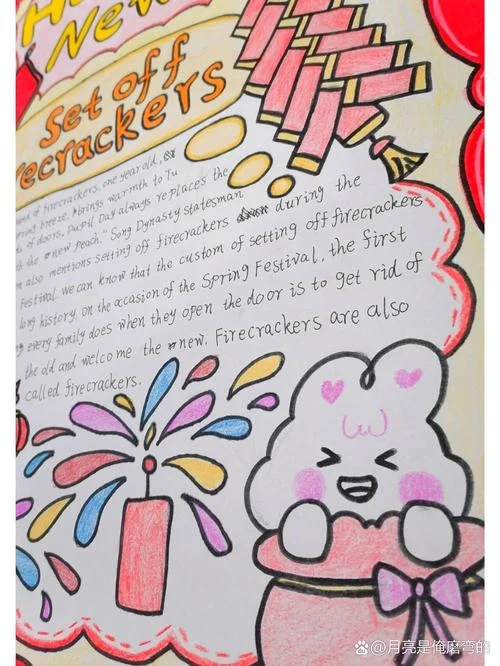 New
Set off
recrackers
of firecrackers, one year old,
breeze, brings warmth to Tu
of doors, Pupil Day always replaces the
the new peach." Song Dynasty statesman
also mentions setting off firecrackers during the
Festival. We can know that the custom of setting off firecrackers
long history. On the occasion of the Spring Festival, the first
every family does when they open the door is to get rid of
the old and welcome the new. Firecrackers are also
called firecrackers.
@月亮是俺磨弯的